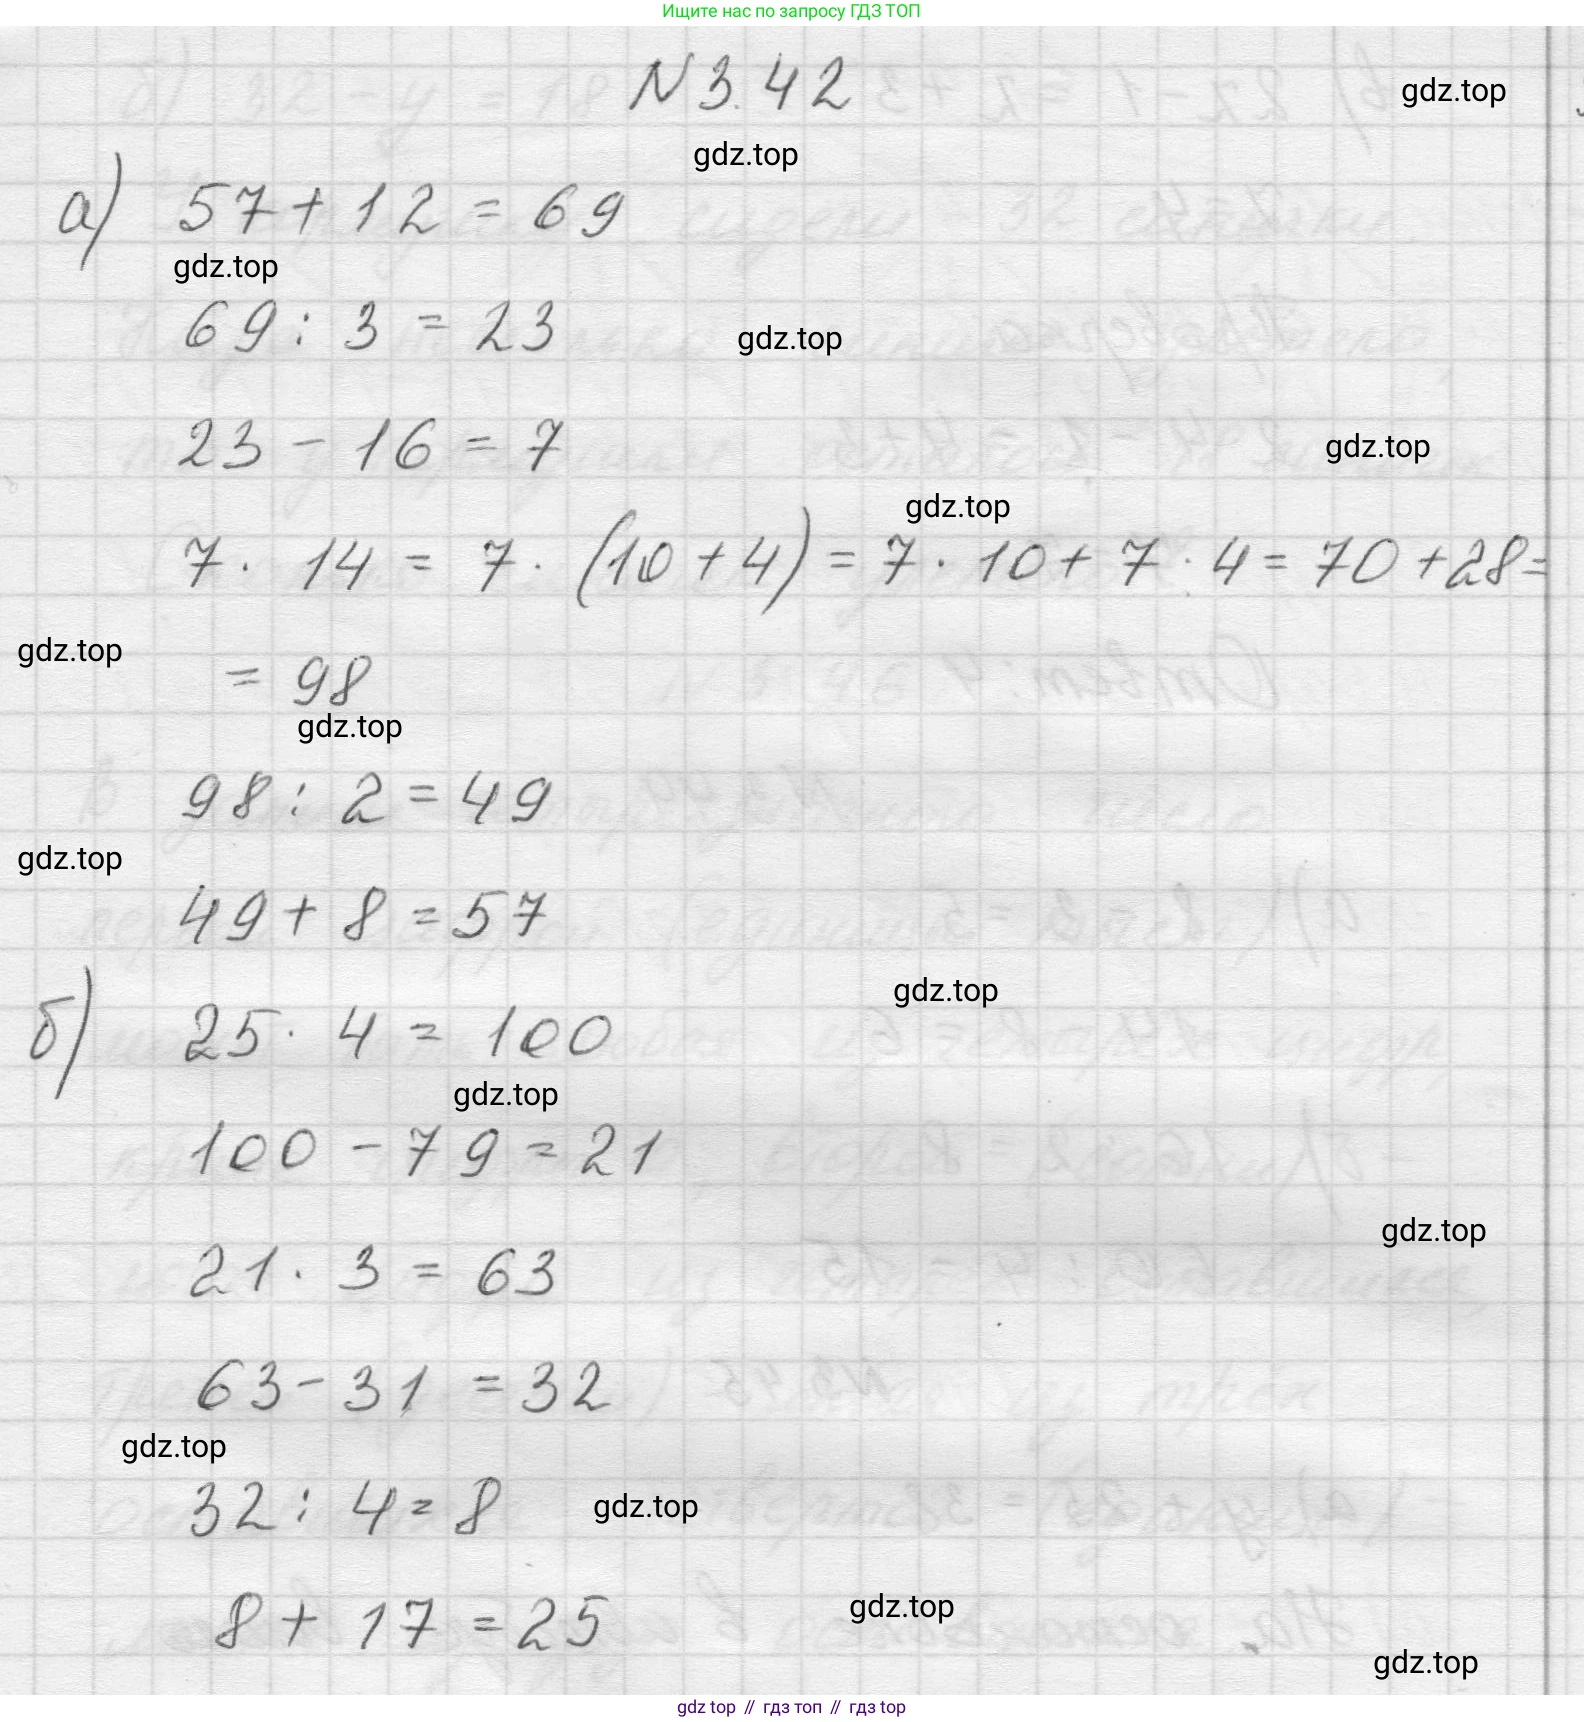 Ищите нас по запросу ГДЗ ТОП
N 3.42
gdz.top
gdz.top
а) 57 + 12 = 69
gdz.top
69 : 3 = 23
gdz.top
23 - 16 = 7
gdz.top
gdz.top
7 · 14 = 7 · (10 + 4) = 7 · 10 + 7 · 4 = 70 + 28 =
gdz.top
= 98
gdz.top
98 : 2 = 49
gdz.top
49 + 8 = 57
gdz.top
б) 25 · 4 = 100
gdz.top
100 - 79 = 21
gdz.top
21 · 3 = 63
63 - 31 = 32
gdz.top
32 : 4 = 8
gdz.top
8 + 17 = 25
gdz.top
gdz.top
gdz top // гдз топ // гдз top